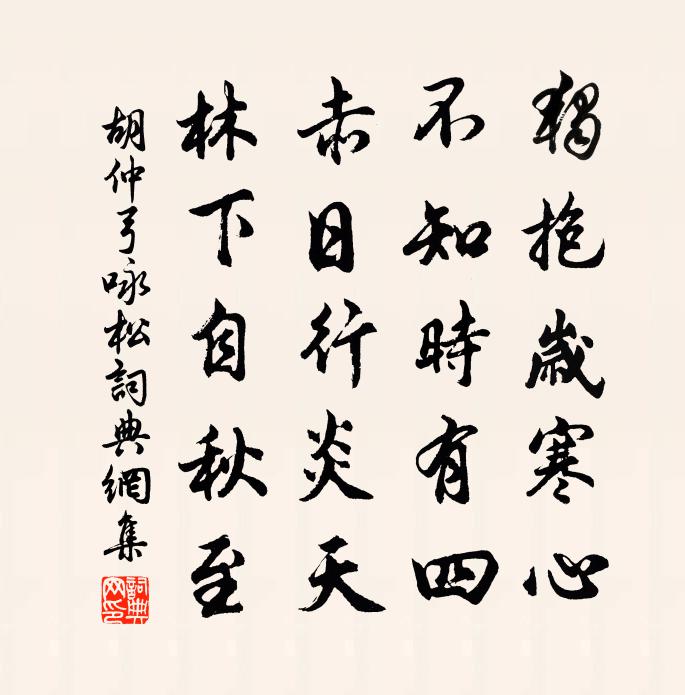 獨抱歲寒心
不知時有四
赤日行炎天
林下自秋至
胡仲弓咏松詞典網集
詞典網印